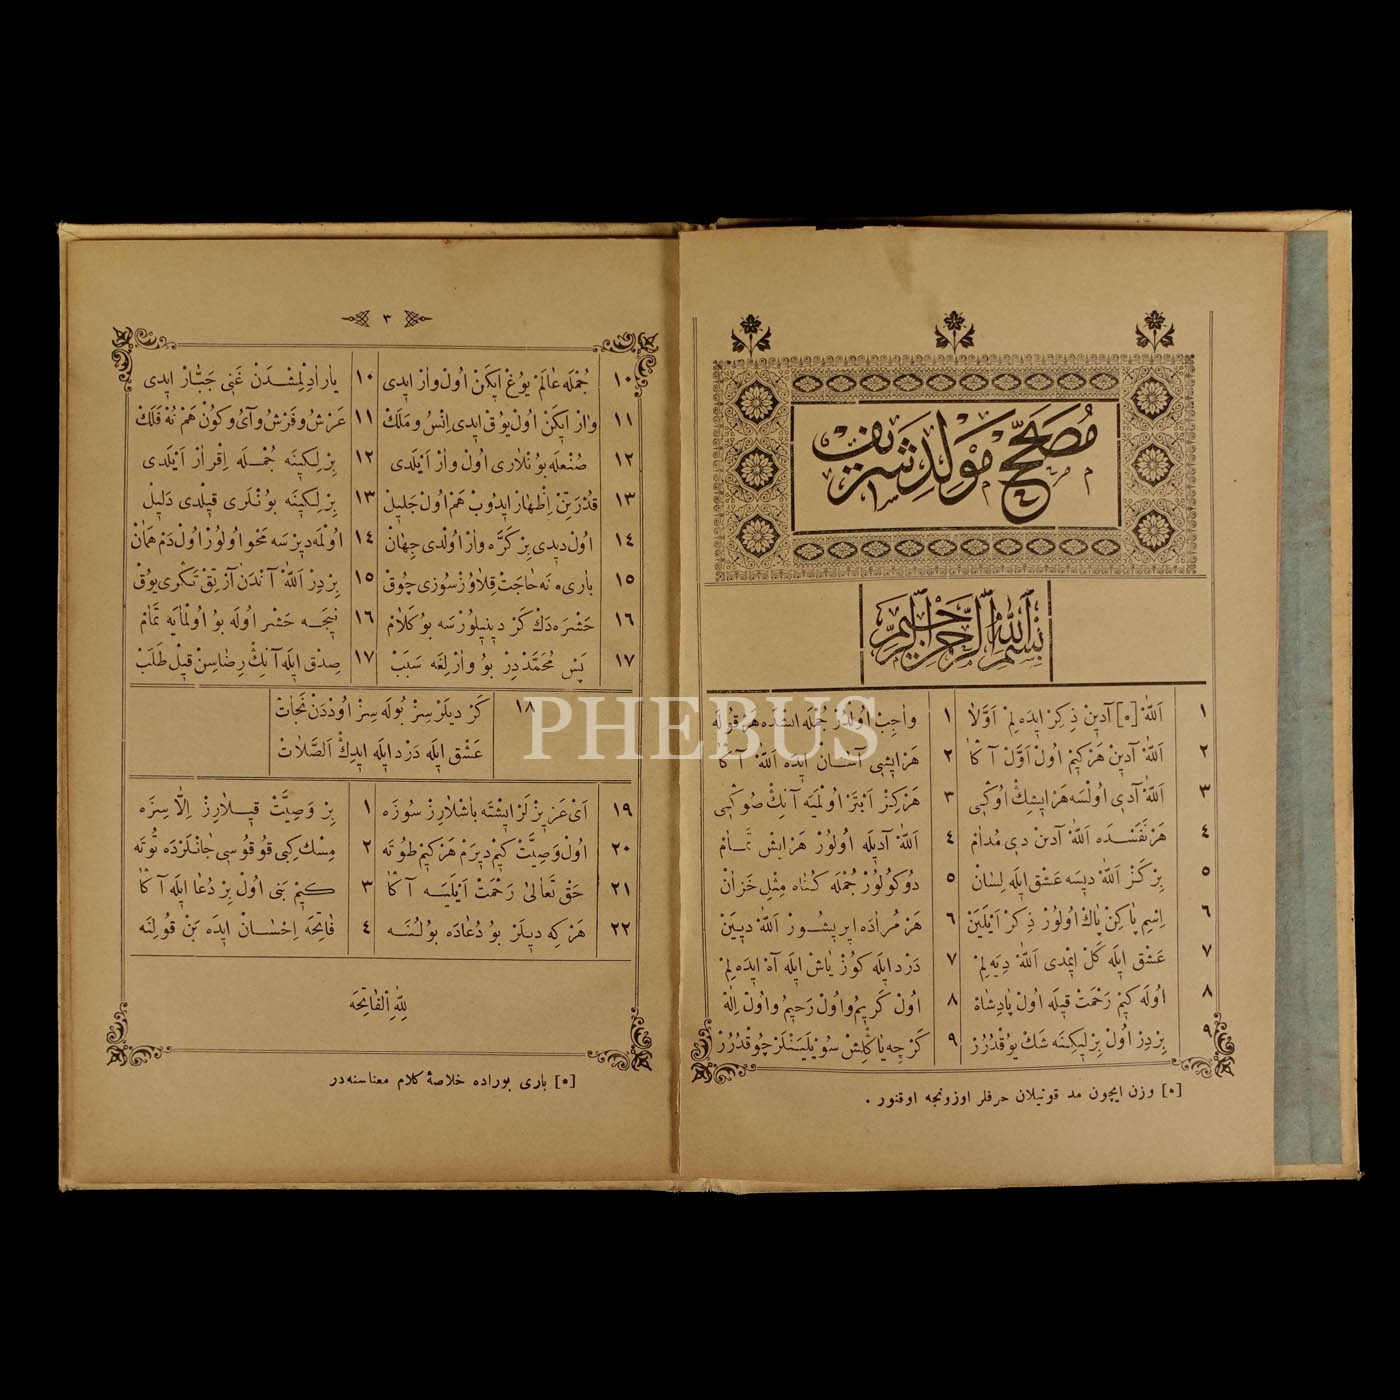 مُصَحَّح مَوْلِدِ شَرِيف
بِسْمِ اللّٰهِ الرَّحْمٰنِ الرَّحِيمِ
١ اَللّٰهْ [٥] آدِينْ ذِكِرْ ايدَه لِمْ اَوَّلَا ١ وَاجِبْ اُولدُرْ جُمْلَه ايشده هَرْ قُولَه
٢ اَللّٰهْ آدِينْ هَرْ كِيمْ اُولْ اَوَّلْ آ كَا ٢ هَرْ ايشِى آسَانْ ايدَه اَللّٰهْ آ كَا
٣ اَللّٰهْ آدِى اُولْسَه هَرْ ايشِكْ اوُكِى ٣ هَرْكِزْ اَبْتَرْ اُولْمَيَه آنِكْ صُوكِى
٤ هَرْ نَفَسْدَه اَللّٰهْ آدِنْ دِى مُدَامْ ٤ اَللّٰهْ آدِيلَه اُولُورْ هَرْ ايشْ تَمَامْ
٥ بِرْ كَزْ اَللّٰهْ دِيسَه عَشْقْ ايلَه لِسَانْ ٥ دُوكُولُورْ جُمْلَه كُنَاه مِثْلِ خَزَانْ
٦ اِسْمِ پَاكِنْ پَاكْ اُولُورْ ذِكْرْ اَيْلَيَنْ ٦ هَرْ مُرَادَه ايرِيشُورْ اَللّٰهْ دِيَيَنْ
٧ عَشْقْ ايلَه كَلْ ايمْدِى اَللّٰهْ دِيَه لِمْ ٧ دَرْد ايلَه كوُزْ يَاشْ ايلَه آه ايدَه لِمْ
٨ اوُلَه كِيمْ رَحْمَتْ قِيلَه اُولْ پَادِشَاه ٨ اُولْ كَرِيمُ و اُولْ رَحِيمُ و اُولْ اِلٰه
٩ بِرْدِرْ اُولْ بِرْلِيكِينَه شَكْ يُوقْدُرُرْ ٩ كَرْچِه يَاكْلِشْ سُويْلَيَنْلَرْ چُوقْدُرُرْ
[٥] وزن ايچون مد قونيلان حرفلر اوزونجه اوقنور .
٣
١٠ جُمْلَه عَالَمْ يُوغْ ايكَنْ اُولْ وَارْ ايدِى ١٠ يَارَادِلْمِشْدَنْ غَنِى جَبَّارْ ايدِى
١١ وَارْ ايكَنْ اُولْ يُوقْ ايدِى اِنْسُ و مَلَكْ ١١ عَرْشُ و فَرْشُ و آىُ و كُونْ هَمْ نُهْ فَلَكْ
١٢ صُنْعلَه بُونْلَارِى اُولْ وَارْ اَيْلَدِى ١٢ بِرْلِكِينَه جُمْلَه اِقْرَارْ اَيْلَدِى
١٣ قُدْرَتِنْ اِظْهَارْ ايدُوبْ هَمْ اُولْ جَلِيلْ ١٣ بِرْلِكِينَه بُونْلَرِى قِيلدِى دَلِيلْ
١٤ اُولْ دِيدِى بِرْ كَرَّه وَارْ اُولْدِى جِهَانْ ١٤ اوُلْمَه دِيرْسَه مَحْو اُولُورْ اُولْ دَمْ هَمَانْ
١٥ بَارِى ٥ نَه حَاجَتْ قِلَاوُزْ سُوزِى چُوقْ ١٥ بِرْدِرْ اَللّٰهْ آنْدَنْ آرْتِقْ تَكْرِى يُوقْ
١٦ حَشْرَه دَكْ كَرْ دِينِيلُورْسَه بُو كَلَامْ ١٦ نِيجَه حَشْر اُولَه بُو اُولْمَايَه تَمَامْ
١٧ پَسْ مُحَمَّدْدِرْ بُو وَارْلِغَه سَبَبْ ١٧ صِدْق ايلَه آنِكْ رِضَاسِنْ قِيلْ طَلَبْ
١٨ كَرْ دِيلَرْسِزْ بُولَه سِزْ اوُدْدَنْ نَجَاتْ
عَشْقْ ايلَه دَرْد ايلَه ايدِكْ اَلصَّلَاتْ
١٩ اَىْ عَزِيزْلَرْ ايشْتَه بَاشْلَارِزْ سُوزَه ١ بِرْ وَصِيَّتْ قِيلَارِزْ اِلَّا سِزَه
٢٠ اُولْ وَصِيَّتْ كِيمْ دِيرَمْ هَرْ كِيمْ طُوتَه ٢ مِسْك كِبِى قوُقوُسِى جَانْلَرْدَه تُوتَه
٢١ حَقْ تَعَالَىٰ رَحْمَتْ اَيْلَيَه آ كَا ٣ كِيمْ بَنِى اُولْ بِرْ دُعَا ايلَه آ كَا
٢٢ هَرْ كِه دِيلَرْ بُو دُعَادَه بُولُنَه ٤ فَاتِحَه اِحْسَانْ ايدَه بَنْ قُولِنَه
لِلّٰهِ اَلْفَاتِحَه
[٥] بارى بوراده خلاصهٔ كلام معناسنه در
PHEBUS